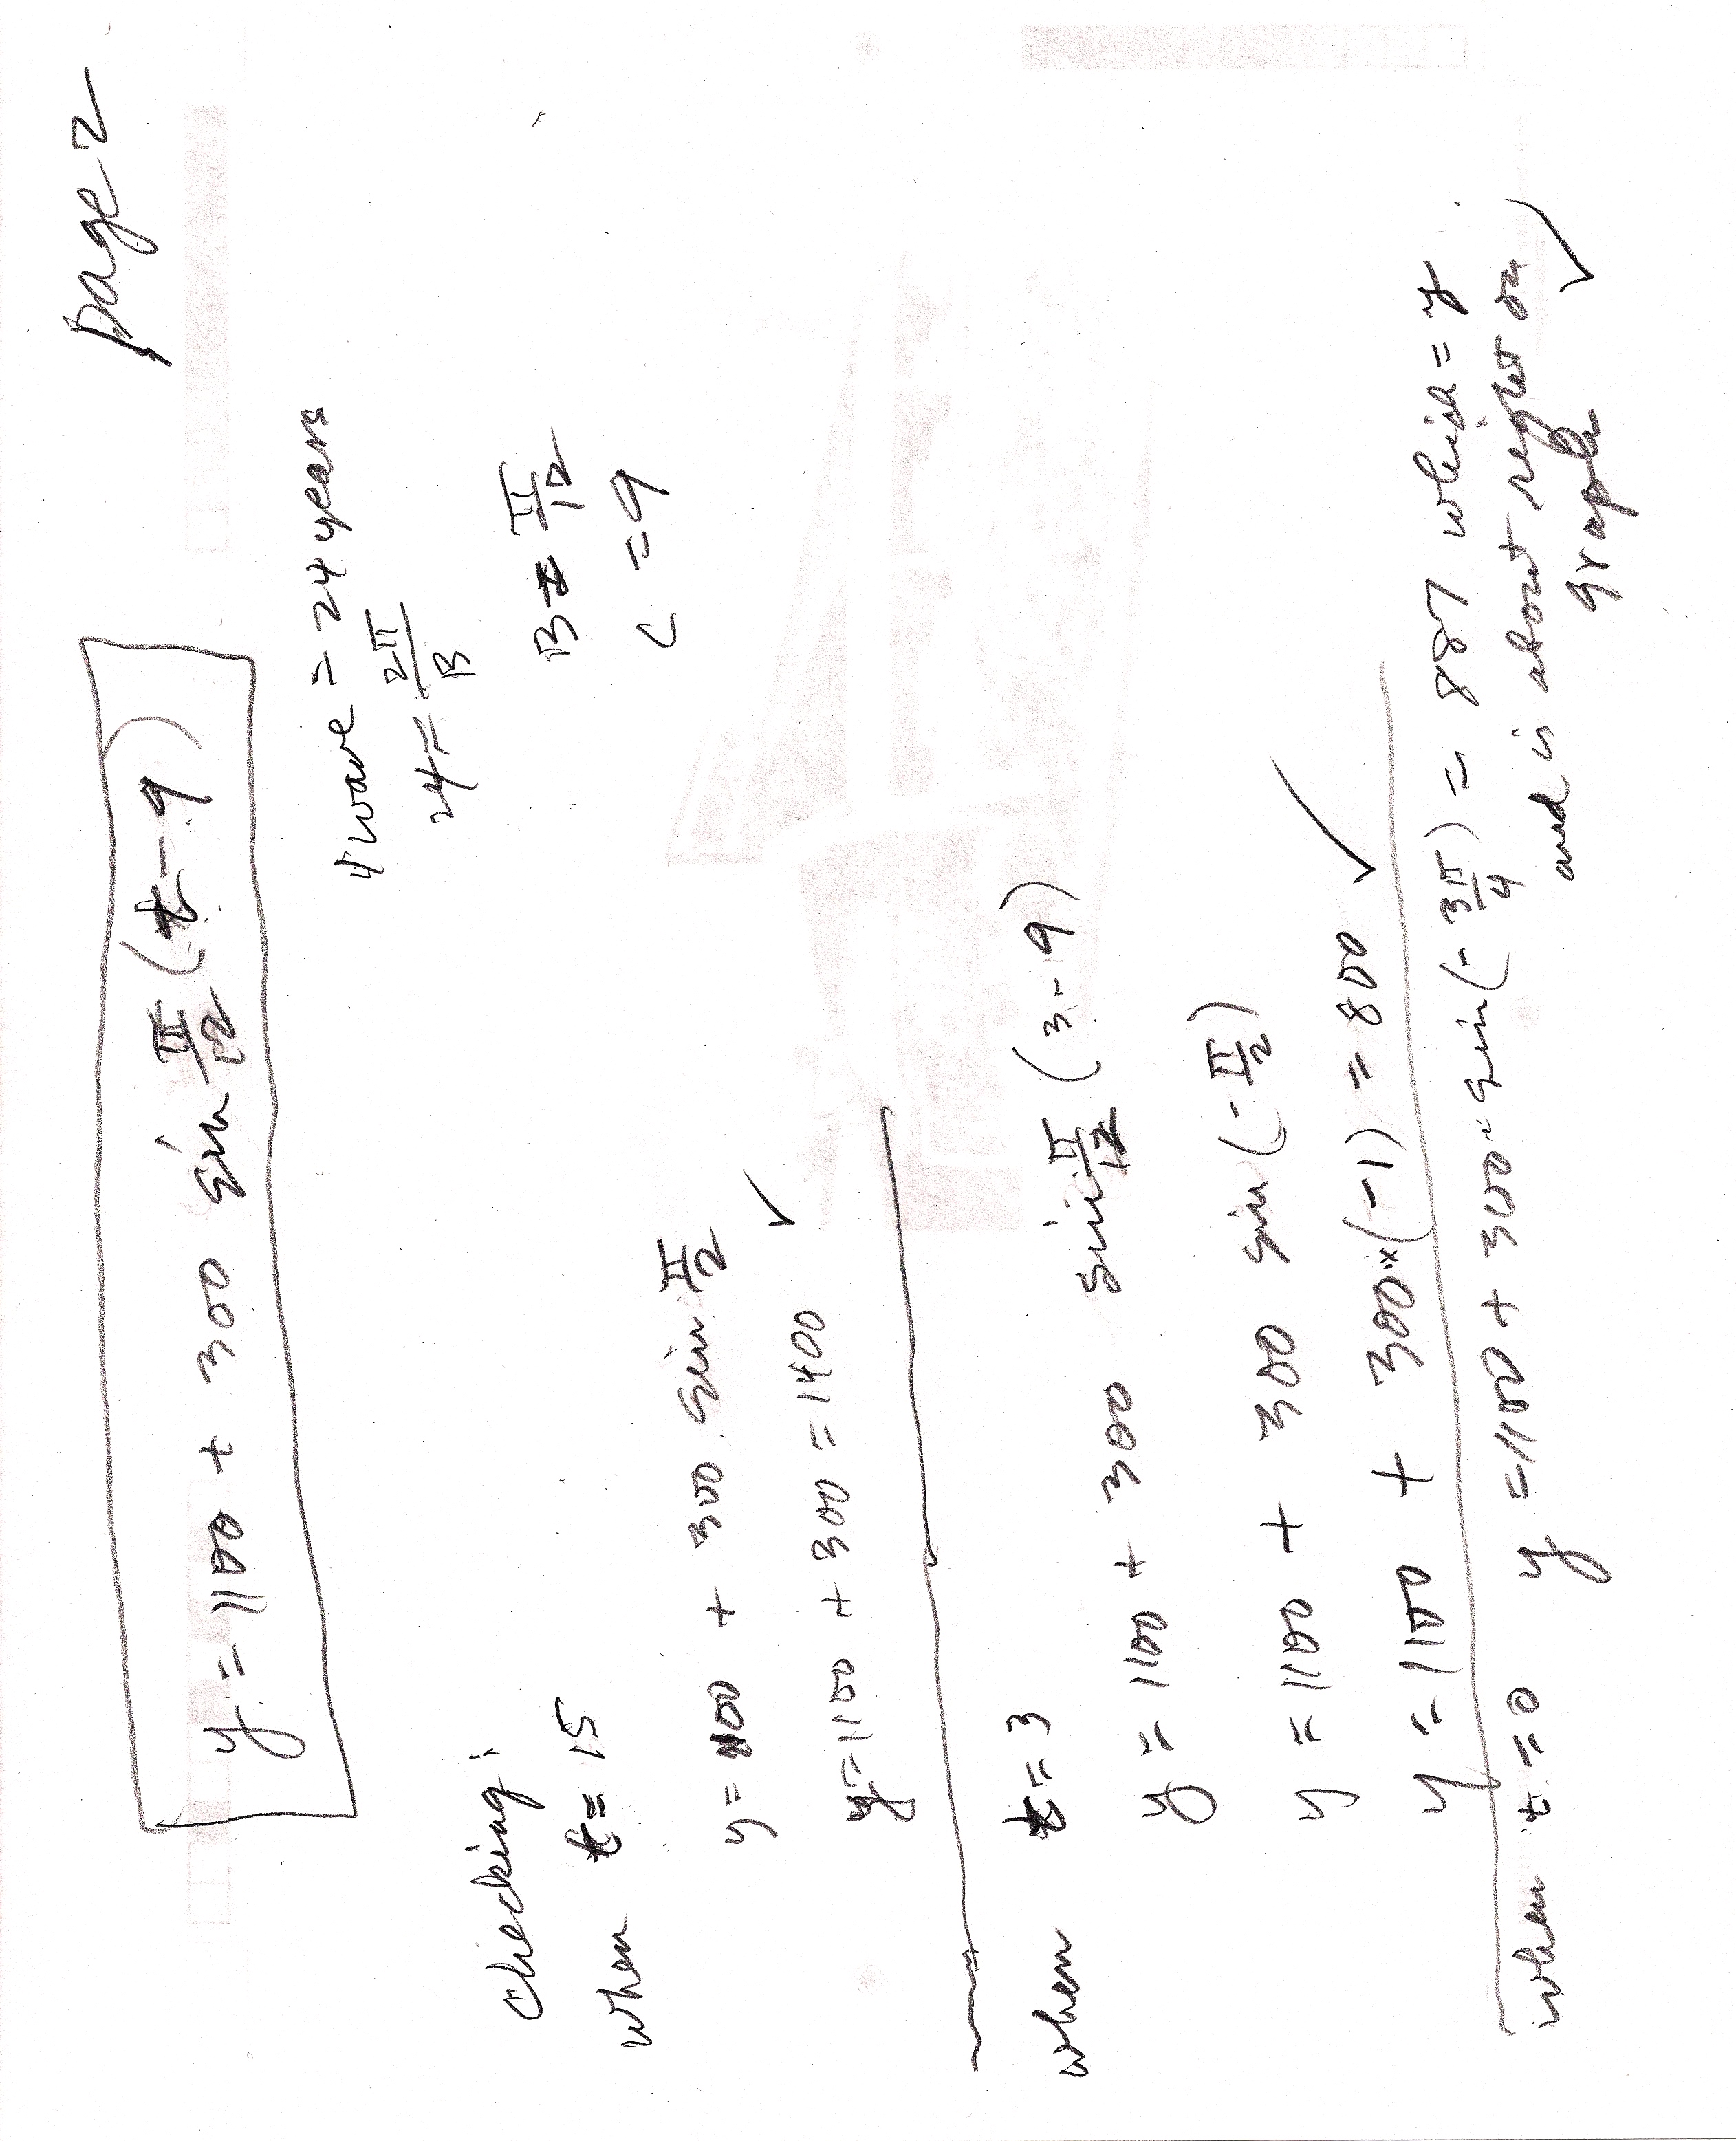 page 2
y = 1100 + 300 sin π/12 (t - 9)
1 wave = 24 years
24 = 2π/B
B = π/12
C = 9
checking:
when t = 15
y = 1100 + 300 sin π/2
y = 1100 + 300 = 1400 ✓
when t = 3
y = 1100 + 300 sin π/12 (3 - 9)
y = 1100 + 300 sin (-π/2)
y = 1100 + 300 × (-1) = 800 ✓
when t = 0 y = 1100 + 300 × sin (-3π/4) = 887 which = y
and is about right on
graph ✓